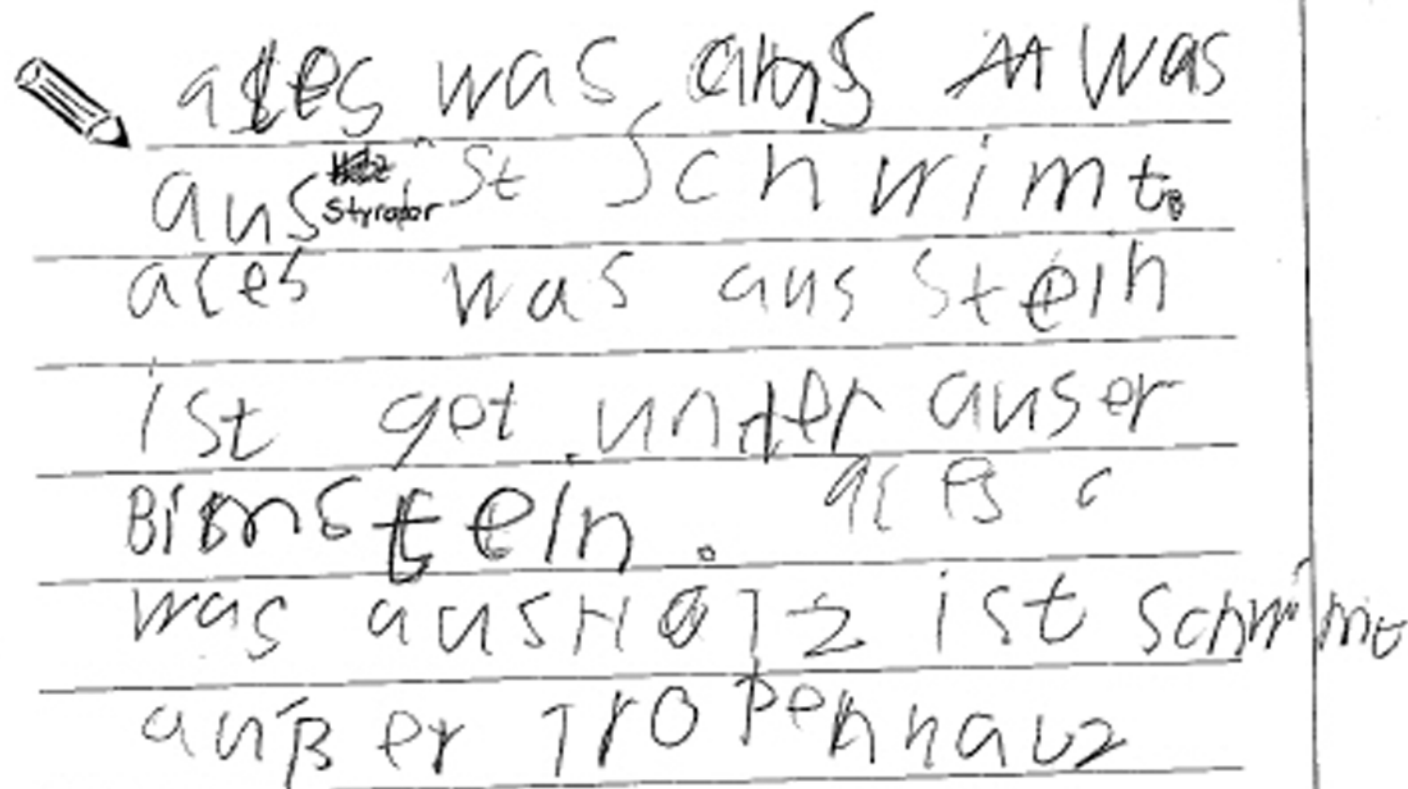 ales was aus was
aus Styropor ist Schwimt.
ales was aus Stein
ist get unter auser
Bimstein. ales
was aus Holz ist schwimt
außer Tropenhaulz